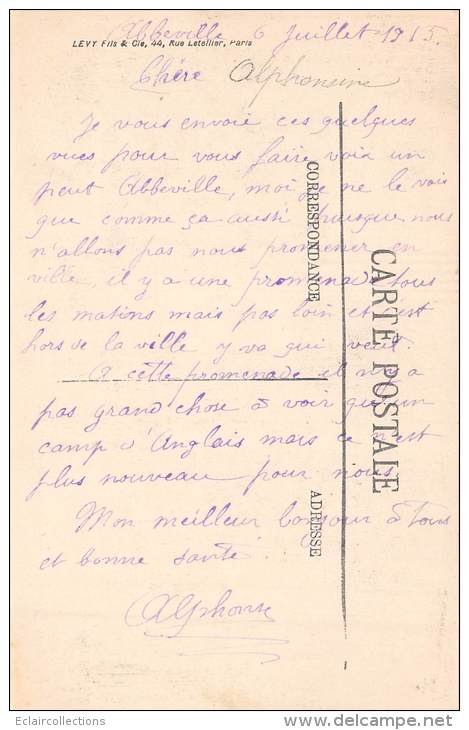 Abbeville 6 Juillet 1915.
LEVY Fils & Cie, 44, Rue Letellier, Paris
Chère Alphonsine
Je vous envoie ces quelques
vues pour vous faire voir un
peut Abbeville, moi je ne le vois
que comme ça aussi puisque nous
n'allons pas nous promener en
ville, il y a une promenade tous
les matins mais pas loin et est
hors de la ville y va qui veut.
A cette promenade il n'y a
pas grand chose à voir qu'un
camp d'Anglais mais ce n'est
plus nouveau pour nous.
Mon meilleur bonjour à tous
et bonne santé.
Alphonse
CORRESPONDANCE
CARTE POSTALE
ADRESSE
Eclaircollections